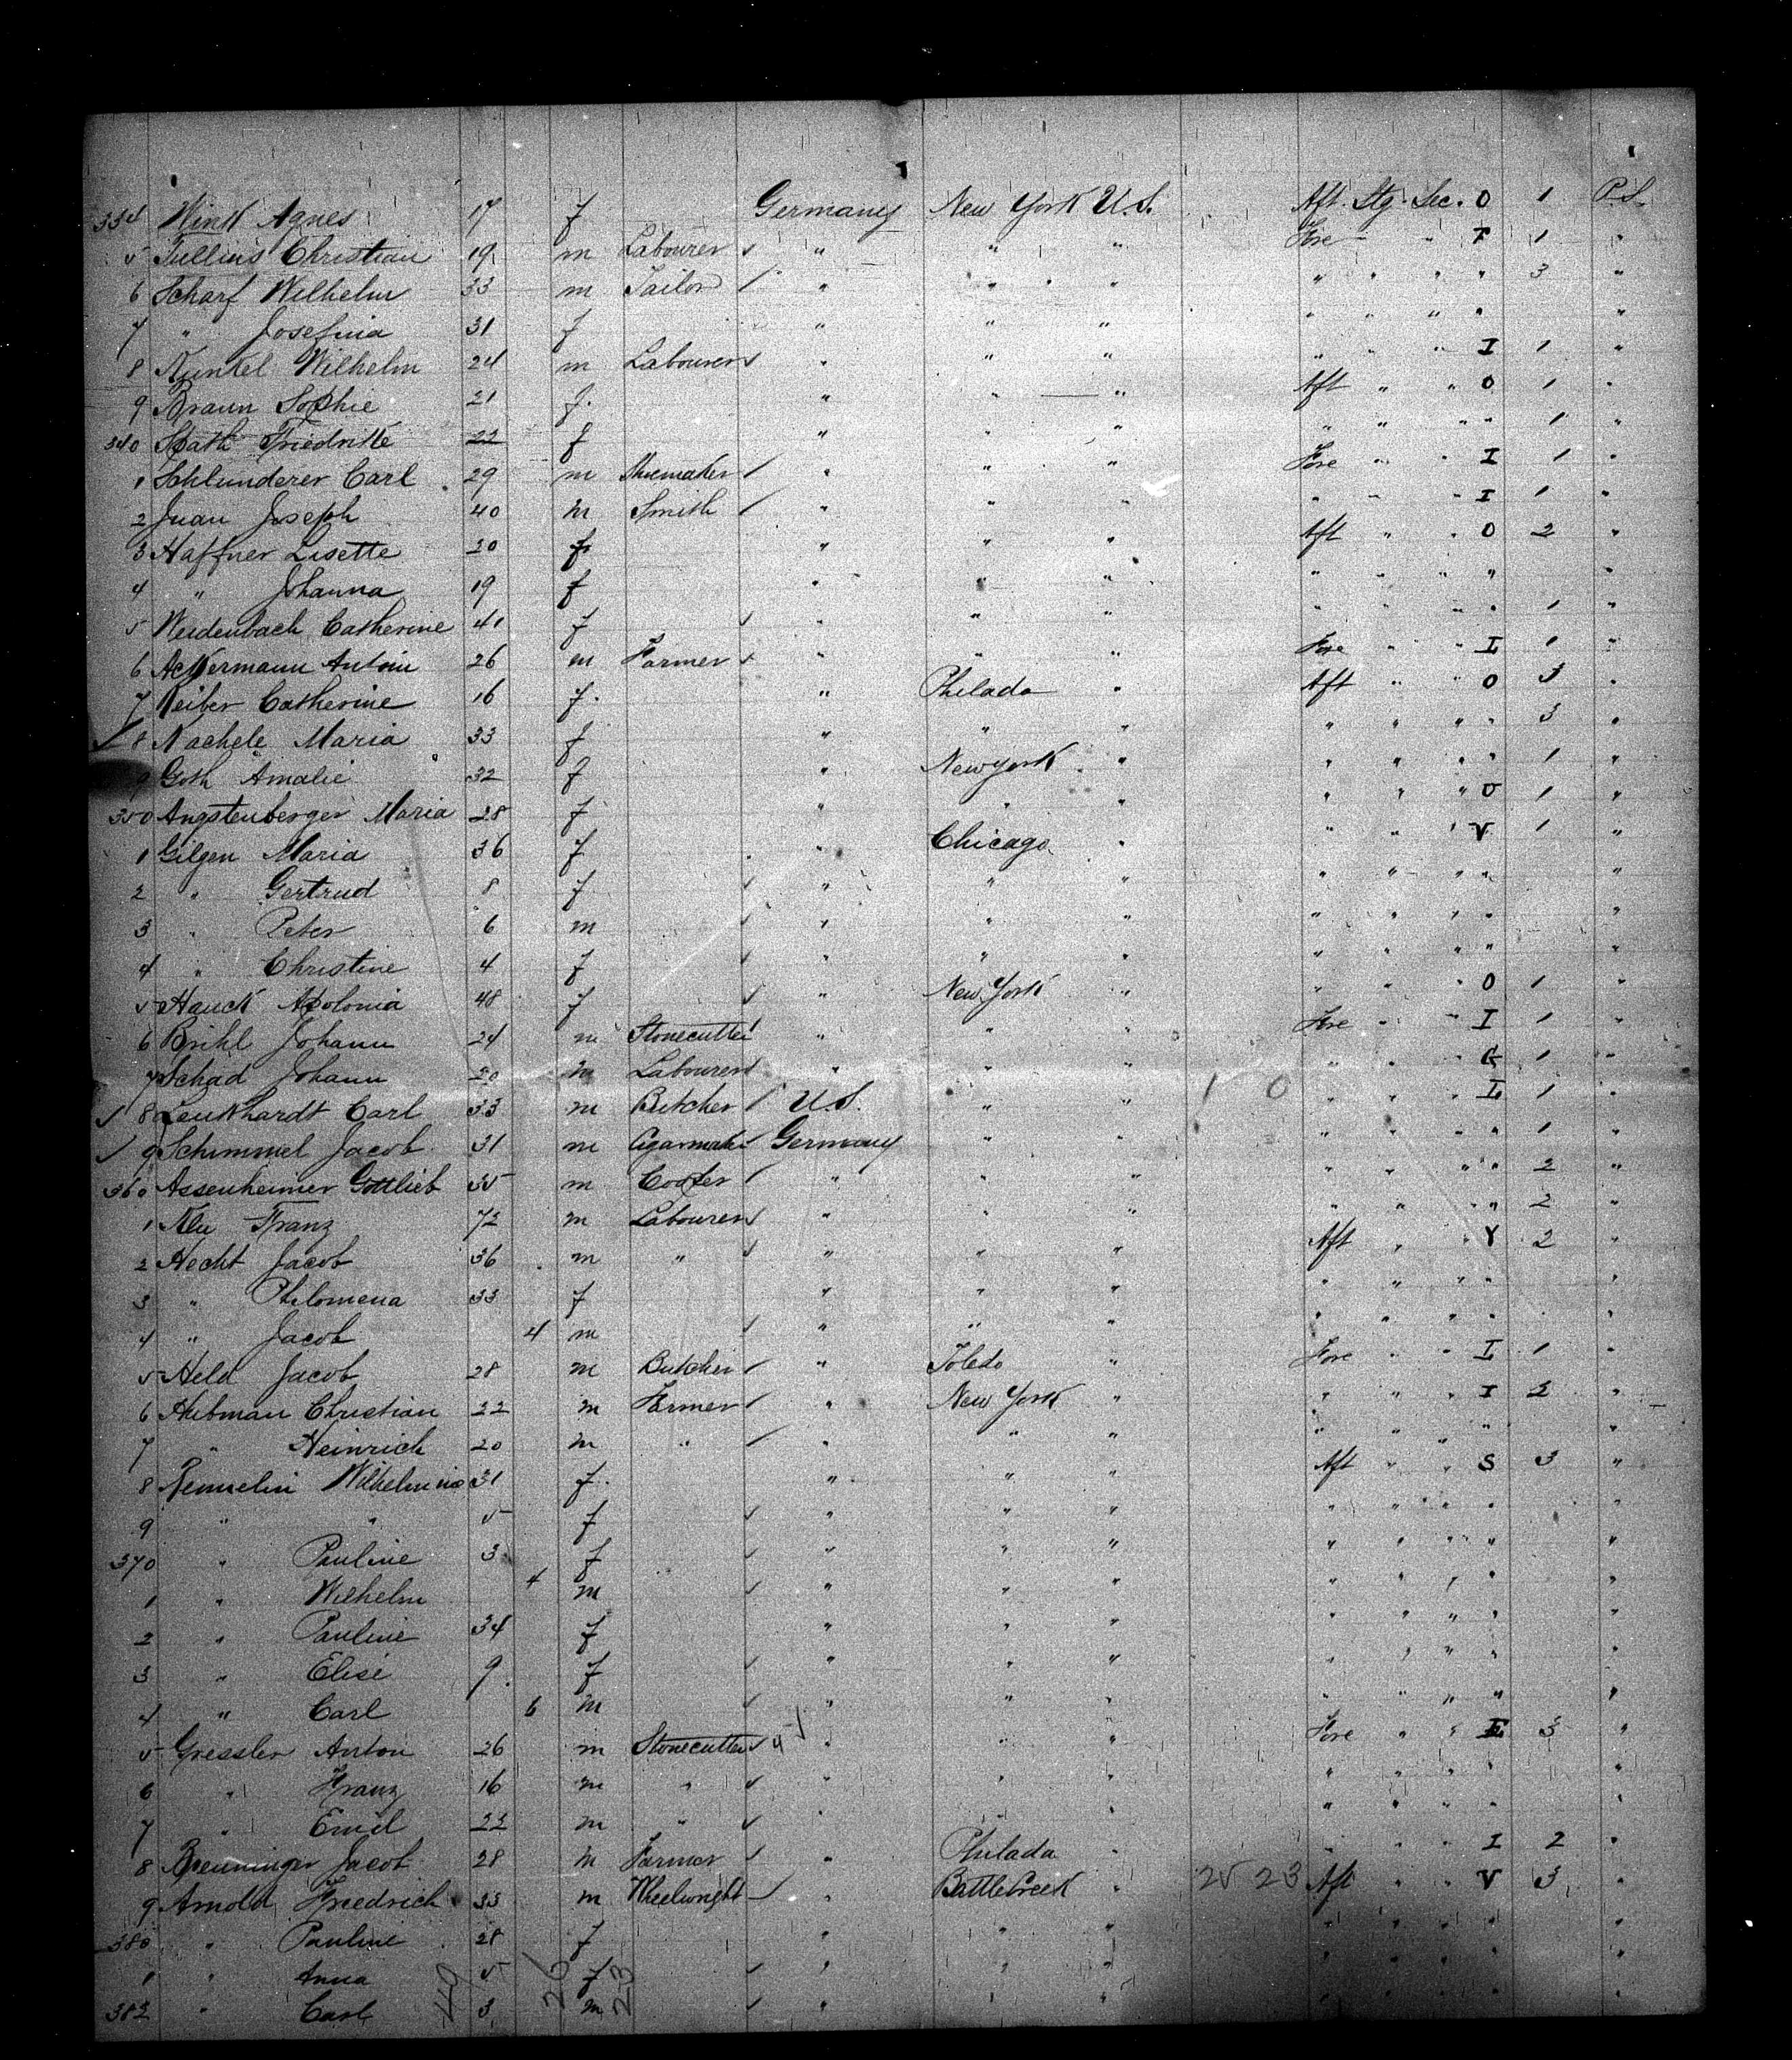 334 Wink Agnes 17 f Germany New York U.S. Aft. Stg. Sec. O 1 P.S.
5 Tullius Christian 19 m Labourer ✓ " " " Fore " " F 1 "
6 Scharf Wilhelm 33 m Tailor / " " " " " " " 3 "
7 " Josefina 31 f " " " " " " " "
8 Kunkel Wilhelm 24 m Labourer ✓ " " " " " " I 1 "
9 Braun Sophie 21 f. " " " Aft " " O 1 "
340 Spath Friedrike 22 f " " " " " " " 1 "
1 Schlunderer Carl 29 m Shoemaker / " " " Fore " " I 1 "
2 Juan Joseph 40 m Smith / " " " " " " I 1 "
3 Haffner Lisette 20 f " " " Aft " " O 2 "
4 " Johanna 19 f " " " " " " " "
5 Weidenbach Catherine 41 f ✓ " " " " " " " 1 "
6 Ackermann Antoin 26 m Farmer ✓ " " " Fore " " I 1 "
7 Keiber Catherine 16 f. " Philada " Aft " " O 3 "
✓ 8 Nachele Maria 33 f " " " " " " " 3 "
9 Goth Amalie 32 f " New york " " " " " 1 "
350 Angstenberger Maria 28 f " " " " " " O 1 "
1 Gilgen Maria 36 f " Chicago " " " " V 1 "
2 " Gertrud 8 f ✓ " " " " " " " "
3 " Peter 6 m ✓ " " " " " " " "
4 " Christine 4 f ✓ " " " " " " " "
5 Hauck Apolonia 48 f ✓ " New York " " " " O 1 "
6 Brihl Johann 24 m Stonecutter / " " " Fore " " I 1 "
7 Schad Johann 20 m Labourer ✓ " " " " " " G 1 "
✓ 8 Leukhardt Carl 33 m Butcher / U.S. " " 1 0 " " " I 1 "
✓ 9 Schimmel Jacob 31 m Cigarmaker ✓ Germany " " " " " " 1 "
360 Assenheimer Gottlieb 35 m Cooper / " " " " " " " 2 "
1 Neu Franz 72 m Labourer ✓ " " " " " " " 2 "
2 Hecht Jacob 36 m " ✓ " " " Aft " " Y 2 "
3 " Philomena 33 f " " " " " " " "
4 " Jacob 4 m ✓ " " " " " " " "
5 Held Jacob 28 m Butcher / " Toledo " Fore " " I 1 "
6 Hubman Christian 22 m Farmer / " New York " " " " I 2 "
7 " Heinrich 20 m " / " " " " " " " "
8 Remmelin Wilhelmina 31 f. " " " Aft " " S 3 "
9 " " 5 f ✓ " " " " " " " "
370 " Pauline 3 f ✓ " " " " " " " "
1 " Wilhelm 4 m ✓ " " " " " " " "
2 " Pauline 34 f " " " " " " " "
3 " Elise 9 f ✓ " " " " " " " "
4 " Carl 6 m ✓ " " " " " " " "
5 Gressler Anton 26 m Stonecutter ✓ " " " Fore " " I 3 "
6 " Franz 16 m " ✓ " " " " " " " "
7 " Emil 22 m " ✓ " " " " " " " "
8 Breuninger Jacob 28 m Farmer ✓ " Philada " " " " I 2 "
9 Arnold Friedrich 33 m Wheelwright ✓ " Battlecreek " 25 23 Aft " " V 3 "
380 " Pauline 28 f " " " " " " " "
1 " Anna 5 f ✓ " " " " " " " "
382 " Carl 3 m ✓ " " " " " " " "
49 26 23